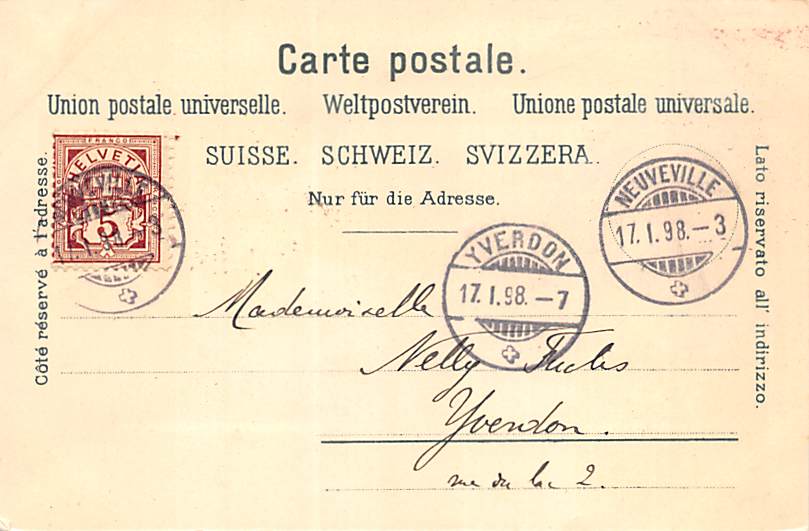 Carte postale.
Union postale universelle. Weltpostverein. Unione postale universale.
SUISSE. SCHWEIZ. SVIZZERA.
Nur für die Adresse.
Côté réservé à l'adresse.
Lato riservato all' indirizzo.
FRANCO
HELVETIA
5
NEUVEVILLE
17.1.98.-3
YVERDON
17.1.98.-7
Mademoiselle
Nelly Fuchs
Yverdon.
rue du lac 2.